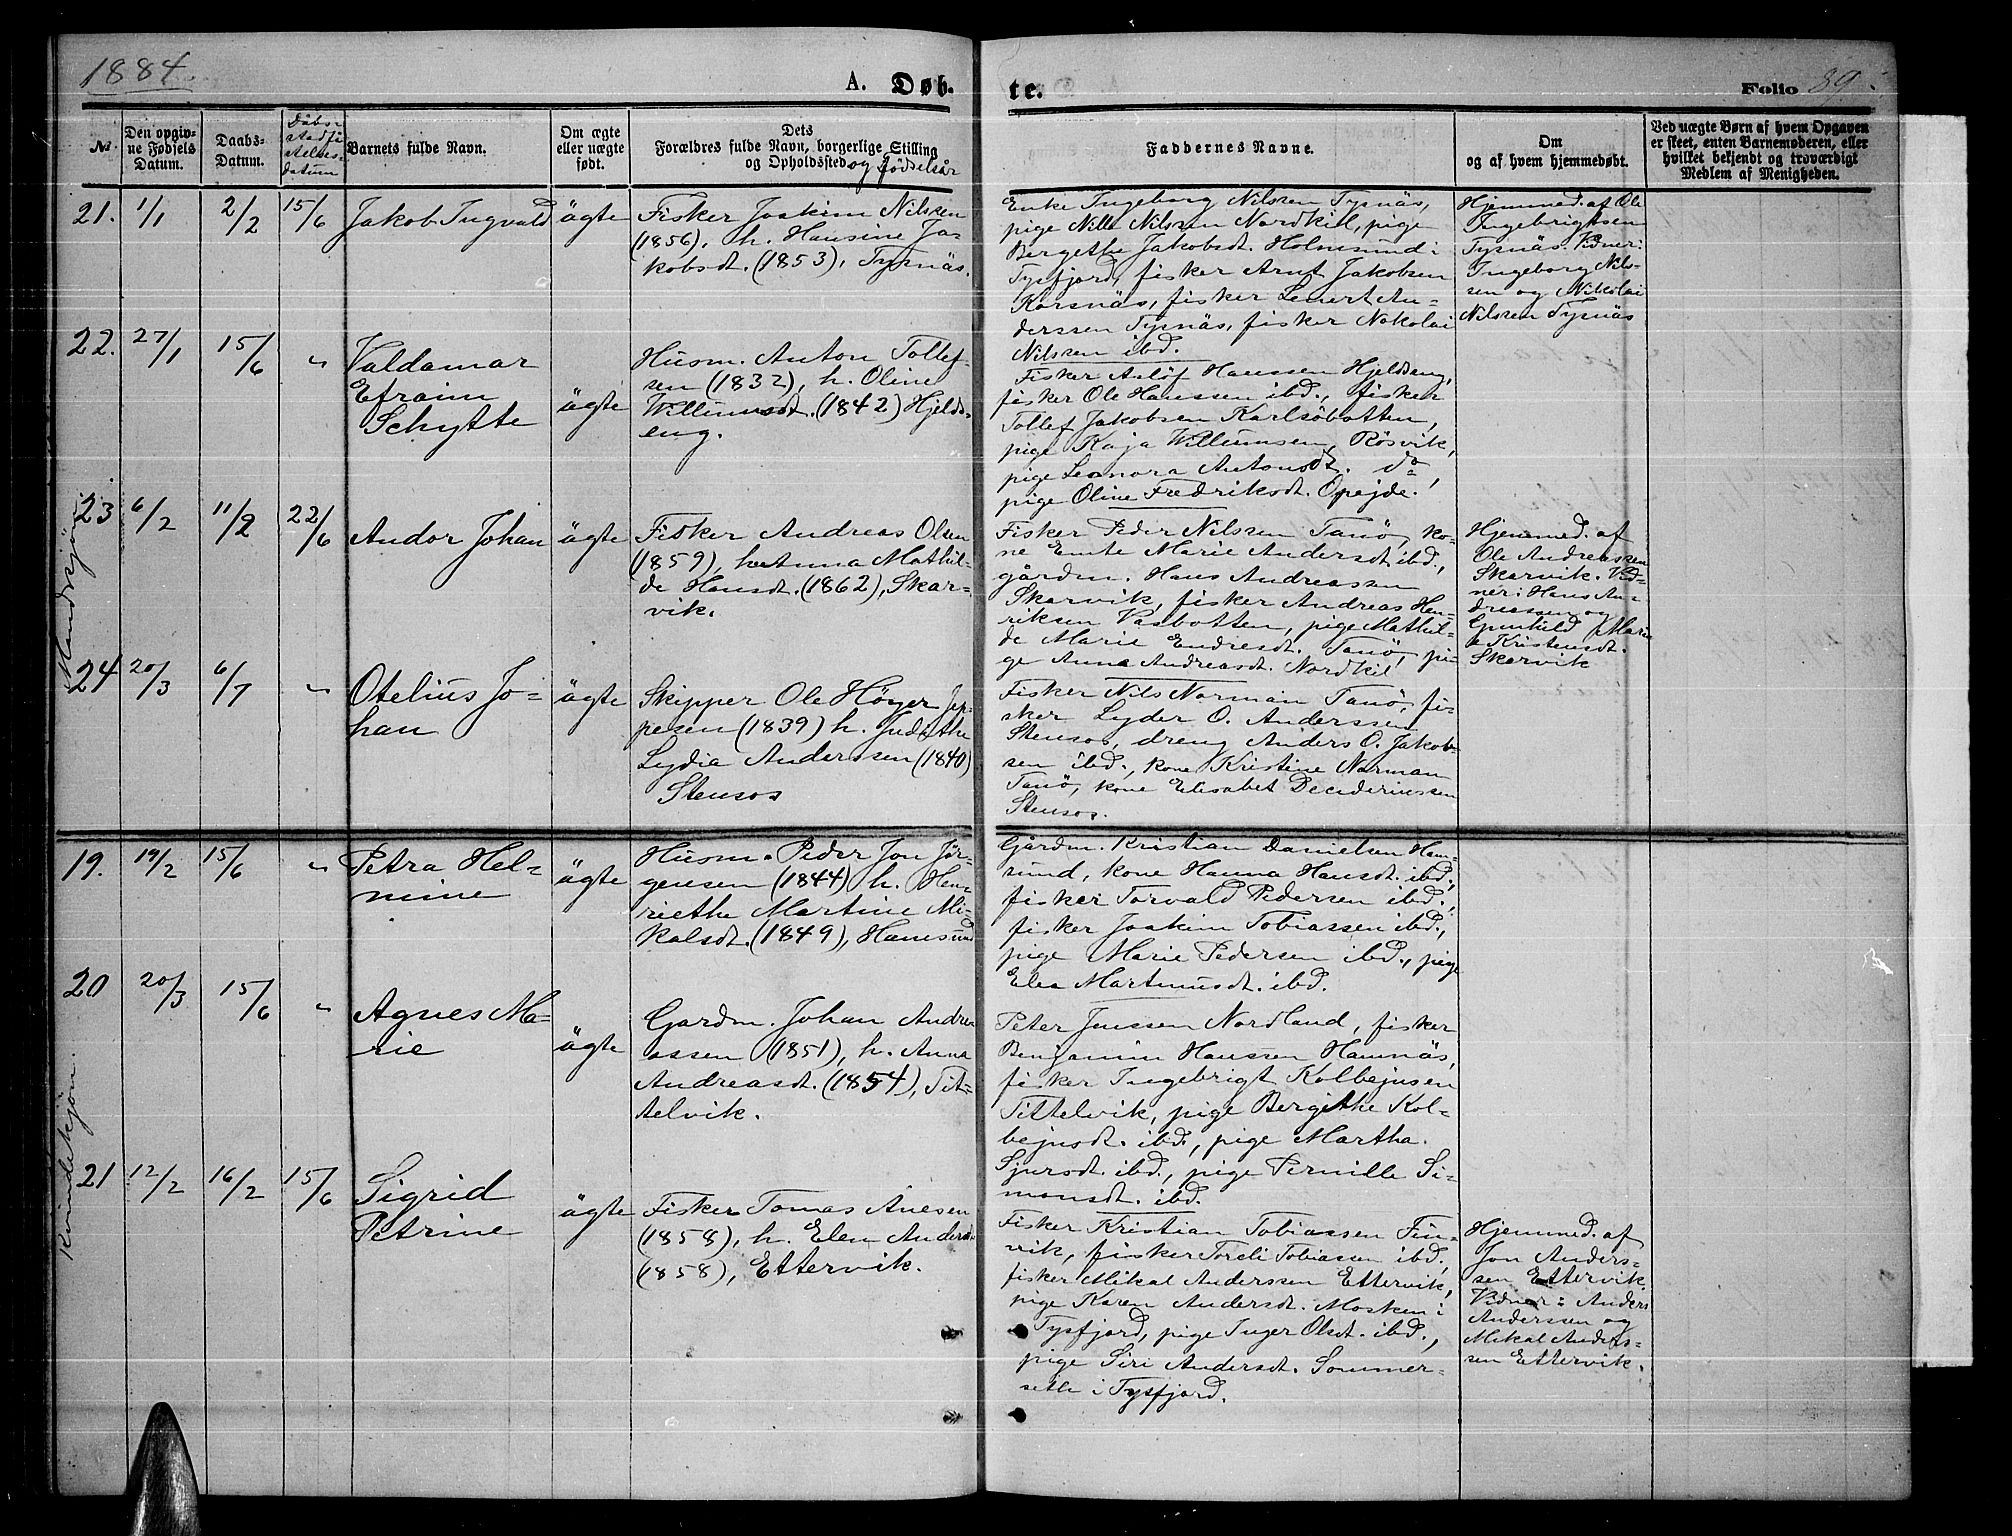 1884.
A. Døb.
te.
Folio 89.
No.
Den opgiv-
ne Fødsels
Datum.
Daabs-
Datum.
Dåbs-
stadfä
stelses-
datum
Barnets fulde Navn.
Om ægte
eller uægte
født.
Dets
Forældres fulde Navn, borgerlige Stilling
og Opholdssted og fødselsår
Faddernes Navne.
Om
og af hvem hjemmedøbt.
Ved uægte Børn af hvem Opgaven
er skeet, enten Barnemoderen, eller
hvilket bekjendt og troværdigt
Medlem af Menigheden.
Mandkjön
21. 1/1 2/2 15/6 Jakob Ingvald ägte
Fisker Joakim Nilssen
(1856), h. Hansine Ja-
kobsdt. (1853), Tysnäs.
Enke Ingeborg Nilssen Tysnäs,
pige Nille Nilssen Nordkil, pige
Bergethe Jakobsdt. Holmsund i
Tysfjord, fisker Arnt Jakobsen
Korsnäs, fisker Lenert An-
derssen Tysnäs, fisker Nokolai
Nilssen ibd.
Hjemmed. af Ole
Ingebrigtsen
Tysnäs. Vidner:
Ingeborg Nils-
sen og Nikolai
Nilssen Tysnäs
22. 27/1 15/6 "
Valdamar
Efraim
Schytte
ägte
Husm. Anton Tollef-
sen (1832), h. Oline
Willumsdt. (1842) Hjelds-
eng.
Fisker Anlöf Hanssen Hjeldseng,
fisker Ole Hanssen ibd., fisker
Tollef Jakobsen Karlsöbotten,
pige Kaja Willumsen, Rösvik,
pige Leonora Antonsdt. do,
pige Oline Fredriksdt. Opejde.
23 6/2 11/2 22/6 Andor Johan ägte
Fisker Andreas Olsen
(1859), h. Anna Mathil-
de Hansdt. (1862), Skar-
vik.
Fisker Peder Nilssen Tanö, ko-
ne Emte Marie Andersdt ibd.,
gårdm. Hans Andreassen
Skarvik, fisker Andreas Hen-
riksen Vasbotten, pige Mathil-
de Marie Endresdt. Tanö, pi-
ge Anna Andreasdt. Nordkil
Hjemmed. af
Ole Andreassen
Skarvik. Vid-
ner: Hans An-
dreassen og
Gunhild Marie
Kristensdt.
Skarvik
24 20/3 6/7 "
Otelius Jo-
han
ägte
Skipper Ole Höyer Jep-
pesen (1839) h. Judithe
Lydia Anderssen (1840)
Stensos
Fisker Nils Norman Tanö, fi-
sker Lyder O. Anderssen
Stensos, dreng Anders O. Jakob-
sen ibd., kone Kristine Norman
Tanö, kone Elisabet Deciderinssen
Stensos.
Kvindekjön.
19. 19/2 15/6 "
Petra Hel-
mine
ägte
Husm. Peder Jon Jör-
gensen (1844) h. Hen-
riethe Martine Mi-
kalsdt. (1849), Hamsund
Gårdm. Kristian Danielsen Ham-
sund, kone Hanna Hansdt. ibd.,
fisker Torvald Pedersen ibd.,
fisker Joakim Tobiassen ibd.,
pige Marie Pedersen ibd., pige
Elea Martinusdt. ibd.
20 20/3 15/6 "
Agnes Ma-
rie
ägte
Gardm. Johan Andre
assen (1851), h. Anna
Andreasdt. (1854), Tit-
telvik.
Peter Jenssen Nordland, fisker
Benjamin Hanssen Hamnäs,
fisker Ingebrigt Kolbejnsen
Tittelvik, pige Bergithe Kol-
bejnsdt. ibd., pige Martha
Sjursdt. ibd., pige Pernille Si-
monsdt. ibd.
21 12/2 16/2 15/6
Sigrid
Petrine
ägte
Fisker Tomas Anesen
(1858), h. Elen Andersdt.
(1858), Ettervik.
Fisker Kristian Tobiassen Fin-
vik, fisker Toreli Tobiassen ibd,
fisker Mikal Anderssen Ettervik,
pige Karen Andersdt. Mosken i
Tysfjord, pige Inger Olsdt. ibd.,
pige Siri Andersdt. Sommer-
sette i Tysfjord.
Hjemmed. af
Jon Anders-
sen Ettervik.
Vidner: Anders
Anderssen og
Mikal Anders-
sen Ettervik.